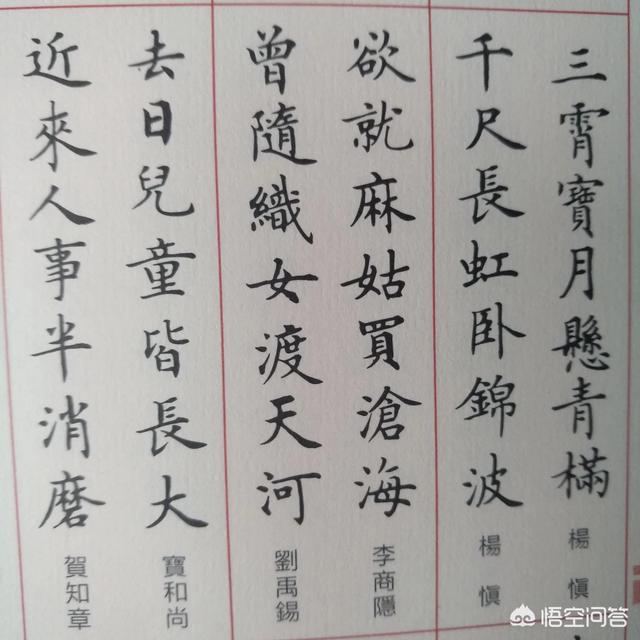 三霄寶月懸青樠
楊愼
千尺長虹卧錦波
楊愼
欲就麻姑買滄海
李商隱
曾隨織女渡天河
劉禹錫
去日兒童皆長大
寶和尚
近來人事半消磨
賀知章
悟空问答